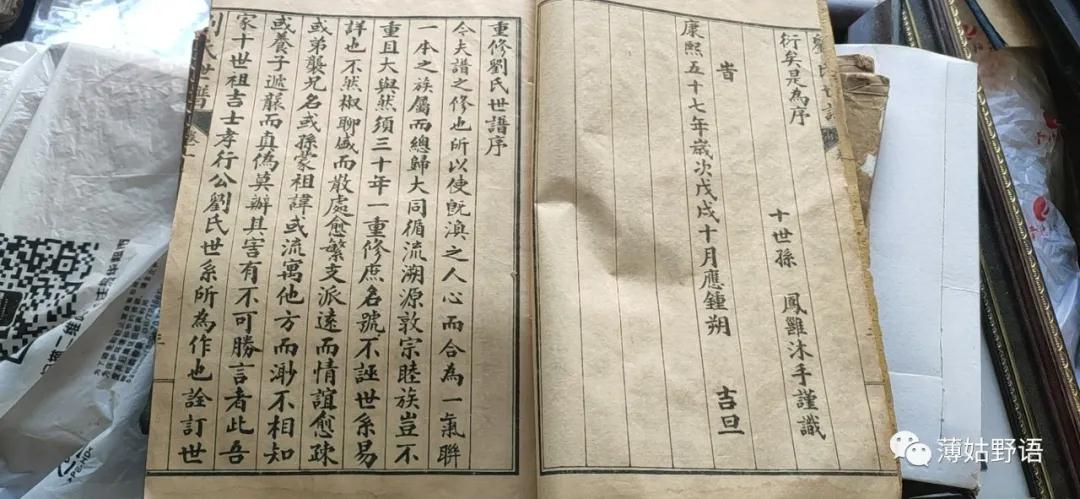 衍矣是為序
十世孫　鳳雞沐手謹識
旹
康熙五十七年歲次戊戌十月應鍾朔　吉旦
重修劉氏世譜序
今夫譜之修也所以使旣渙之人心而合為一氣聯
一本之族屬而總歸大同循流溯源敦宗睦族豈不
重且大與然須三十年一重修庶名號不誣世系易
詳也不然椒聊盛而散處愈繁支派遠而情誼愈疎
或弟襲兄名或孫蒙祖諱或流寓他方而渺不相知
或養子遞而真偽莫辦其害有不可勝言者此吾
家十世祖吉士孝行公劉氏世系所為作也詮訂世
劉氏世譜
三
薄姑野语